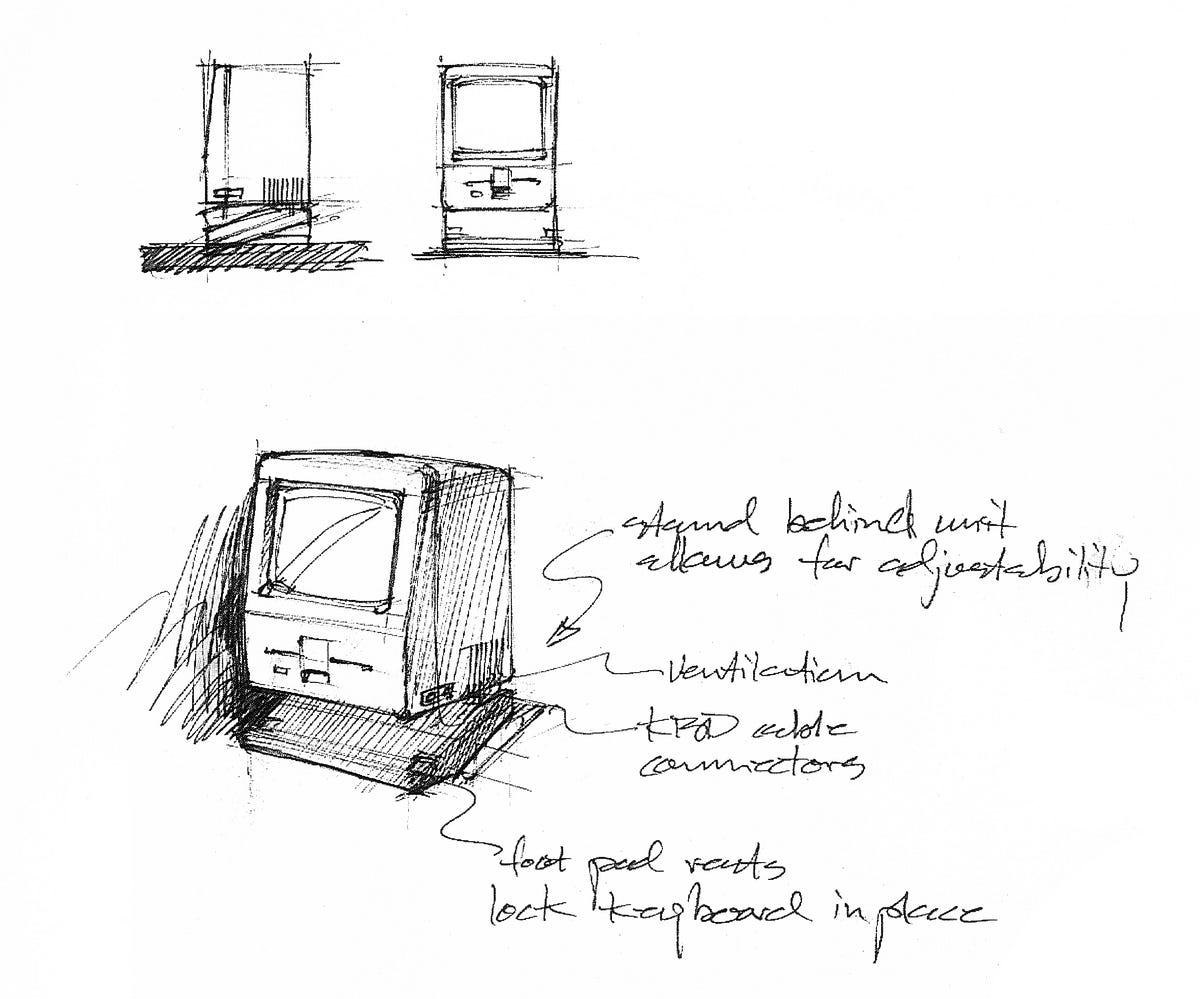 stand behind unit
allows for adjustability
ventilation
KBD cable
connectors
foot pad rests
lock keyboard in place